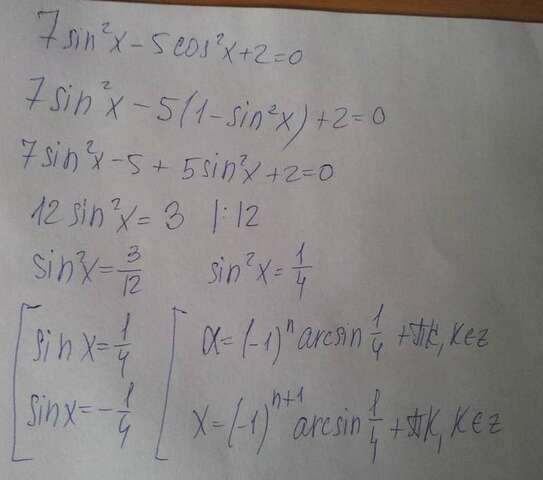 7sin²x - 5cos²x + 2 = 0
7sin²x - 5(1 - sin²x) + 2 = 0
7sin²x - 5 + 5sin²x + 2 = 0
12sin²x = 3 |:12
sin²x = 3/12 sin²x = 1/4
[ sin x = 1/4 [ x = (-1)ⁿ arcsin 1/4 + πk, k∈z
sin x = - 1/4 x = (-1)ⁿ⁺¹ arcsin 1/4 + πk, k∈z